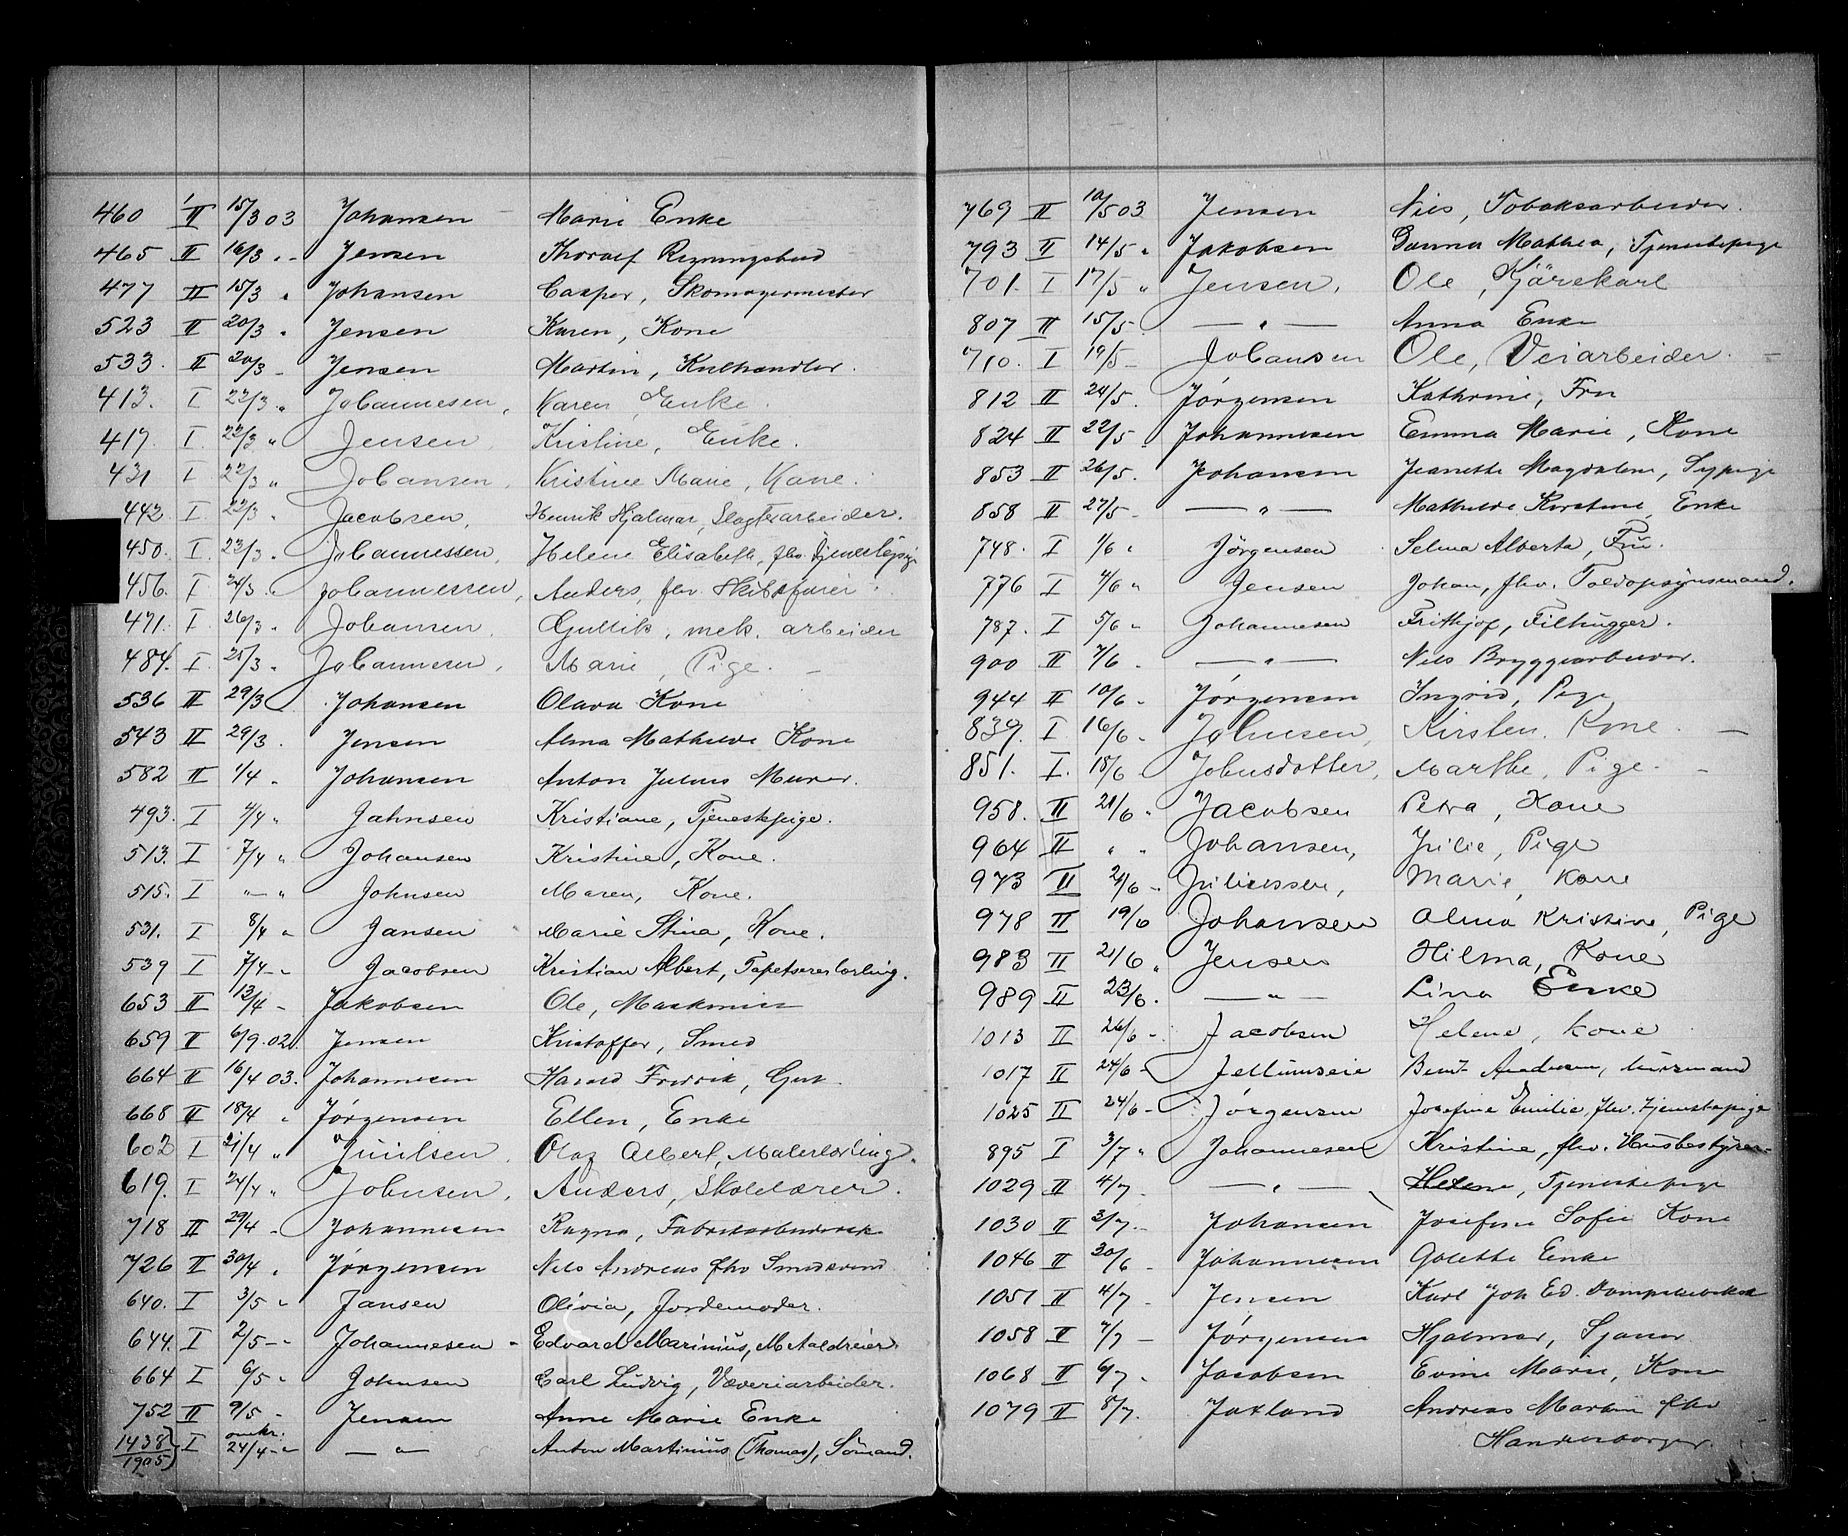 460 II 15/3 03 Johansen Marie Enke
465 II 16/3 „ - Jensen Thoralf Regningsbud
477 II 15/3 „ Johansen Casper, Skomagermester
523 II 20/3 „ Jensen Karen, Kone
533. II 20/3 - Jensen Martin, Kulhandler.
413. I 22/3 „ Johannesen, Karen, Enke.
417. I. 22/3 „ Jensen Kristine, Enke.
431 I 22/3 „ Johansen, Kristine Marie, Kone.
442. I. 22/3 „ Jacobsen, Henrik Hjalmar, Slagteriarbeider.
450. I. 23/3 „ Johannessen, Helene Elisabeth, fhv. Tjenestepige
456. I. 24/3 . Johannessen, Anders, fhv. Skibsfører.
471. I. 26/3 „ Johansen, Gullik, mek. arbeider
484. I. 25/3 „ Johannesen, Marie, Pige. -
536 II 29/3 Johansen Olava Kone
543 II 29/3 . Jensen Alma Mathilde Kone
582 II 1/4 „ Johansen Anton Julius Murer.
493. I 4/4 „ Jahnsen Kristiane, Tjenestpige.
513. I 7/4 „ Johansen Kristine, Kone.
515. I -"- „ Johnsen Maren, Kone.
531. I 8/4 „ Jansen Marie Stina, Kone.
539 I 7/4 - „ Jacobsen Kristian Albert, Tapetsererlærling.
653 II 12/4 - Jakobsen Ole, Maskinist
659 II 6/9.02. Jensen Kristoffer, Smed
664 II 16/4 03. Johannesen Harald Fredrik, Gut.
668 II 18/4 „ Jørgensen Ellen, Enke
602 I 21/4 „ Juulsen, Olaf Albert, Malerlærling.
619. I 24/4 „ Johnsen, Anders, Skolelærer.
718 II 29/4 - Johannesen Ragna, Fabrikarbeiderske
726 II 30/4 „ Jørgensen Nils Andreas fhv Smedsvend
640. I 3/5 „ Jansen Olivia, Jordemoder.
644. I 2/5 - „ Johannesen - Edvard Marinius, Metaldreier.
664 I 6/5 „ Johnsen Carl Ludvig, Væveriarbeider.
752 II 9/5 - Jensen Anne Marie Enke
1438/1905) I omkr. 24/4 - „ - „ - Anton Martinius (Thomas), Sømand.
769 II 10/5 03 Jensen Nils, Tobaksarbeider.
793 II 14/5 „ Jakobsen Gunna Mathea, Tjenestepige
701. I 17/5 „ Jensen, Ole, Kjørekarl
807 II 15/5 . - „ - Anna Enke
710. I 19/5 - Johansen Ole, Veiarbeider. -
812 II 24/5 . Jørgensen Kathrine, Fru
824 II 22/5 . Johannesen Emma Marie, Kone
853 II 26/5 . Johansen Jeanette Magdalene, Sypige
858 II 27/5 - - „ - Mathilde Kirstine, Enke
748. I 1/6 „ Jörgensen Selma Alberta, Fru.
776 I 4/6 „ Jensen Johan, fhv. Toldopsynsmand.
787. I 5/6 „ Johannesen Frithjof, Filhugger.
900 II 7/6 - - „ - Nils Bryggearbeider.
944 II 10/6 - Jørgensen Ingrid, Pige
839. I. 16/6 - Johnsen, Kirsten, Kone. -
851. I. 18/6 - Johnsdatter, Marthe, Pige. -
958. II 21/6 „ Jacobsen Petra, Kone
964 II „ „ Johansen, Julie, Pige
973 II 21/6 - Juliussen, Marie, Kone
978 II 19/6 Johansen Alma Kristine, Pige
983 II 21/6 „ Jensen Hilma, Kone
989 II 23/6 . - „ - Lina Enke
1013 II 26/6 - Jacobsen Helene, Kone
1017 II 24/6 - Bernt Andersen,
1025 II 24/6 - Jörgensen Josefine Emilie, fhv. Tjenestepige
895 I 3/7 „ Johannesen Kristine, fhv. Husbestyrer-
1029 II 4/7 - „ - Helene, Tjenestepige
1030 II 3/7 - Johansen Josefine Sofie Kone
1046 II 30/6 - Johannesen Golette Enke
1051 II 4/7 - Jensen Karl Joh Ed.
1058 II 7/7 - Jørgensen Hjalmar,
1068 II 6/7 „ Jacobsen Evine Marie, Kone
1079 II 8/7 . Jaxland Andreas Martin fhv
Handelsborger.